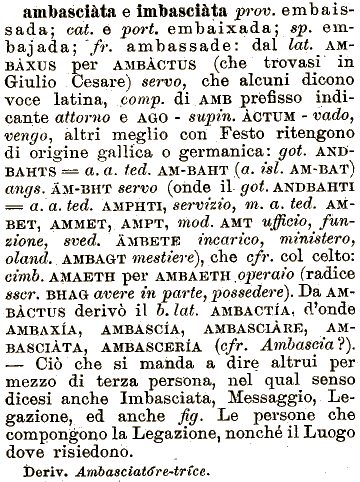 ambasciàta e imbasciàta prov. embais-
sada; cat. e port. embaixada; sp. em-
bajada; fr. ambassade: dal lat. AM-
BÀXUS per AMBÀCTUS (che trovasi in
Giulio Cesare) servo, che alcuni dicono
voce latina, comp. di AMB prefisso indi-
cante attorno e AGO - supin. ÀCTUM - vado,
vengo, altri meglio con Festo ritengono
di origine gallica o germanica: got. AND-
BAHTS = a. a. ted. AM-BAHT (a. isl. AM-BAT)
angs. ÄM-BHT servo (onde il got. ANDBAHTI
= a. a. ted. AMPHTI, servizio, m. a. ted. AM-
BET, AMMET, AMPT, mod. AMT ufficio, fun-
zione, sved. ÄMBETE incarico, ministero,
oland. AMBAGT mestiere), che cfr. col celto:
cimb. AMAETH per AMBAETH operaio (radice
sscr. BHAG avere in parte, possedere). Da AM-
BÀCTUS derivò il b. lat. AMBACTÍA, d'onde
AMBAXÍA, AMBASCÍA, AMBASCIÀRE, AM-
BASCIÀTA, AMBASCERÍA (cfr. Ambascia?).
— Ciò che si manda a dire altrui per
mezzo di terza persona, nel qual senso
dicesi anche Imbasciata, Messaggio, Le-
gazione, ed anche fig. Le persone che
compongono la Legazione, nonché il Luogo
dove risiedono.
Deriv. Ambasciatóre-tríce.